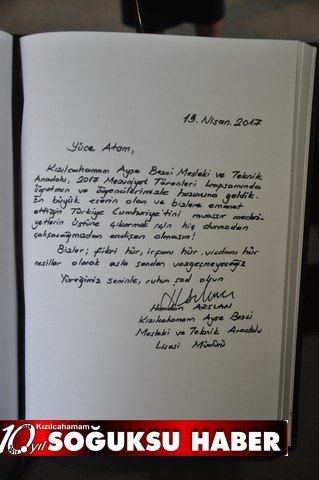 19. Nisan. 2017
Yüce Atam,
Kızılcahamam Ayşe Bezci Mesleki ve Teknik
Anadolu, 2017 Mezuniyet Törenleri kapsamında
öğretmen ve öğrencilerimizle huzuruna geldik.
En büyük eserin olan ve bizlere emanet
ettiğin Türkiye Cumhuriyeti'ni muasır medeni-
yetlerin üstüne çıkarmak için hiç durmadan
çalışacağımızdan endişen olmasın!
Bizler; fikri hür, irfanı hür, vicdanı hür
nesiller olarak asla senden vazgeçmeyeceğiz
Yüreğimiz seninle, ruhun şad olsun
ARSLAN
Kızılcahamam Ayşe Bezci
Mesleki ve Teknik Anadolu
Lisesi Müdürü
Kızılcahamam
10.yıl SOĞUKSU HABER